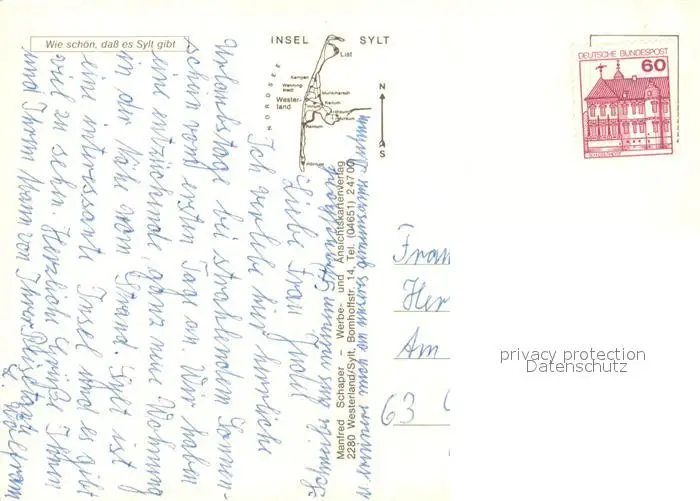 Wie schön, daß es Sylt gibt
INSEL SYLT
List
Kampen
Wenning-
stedt
Munkmarsch
Wester-
land
Keitum
Rantum
Hörnum
NORDSEE
N
S
DEUTSCHE BUNDESPOST
60
Manfred Schaper – Werbe- und Ansichtskartenverlag
2280 Westerland/Sylt, Bomhoffstr. 14, Tel. (04651) 24700
Liebe Frau
Ich verlebe hier herrliche
Urlaubstage bei strahlendem Sonnen-
schein vom ersten Tag an. Wir haben
eine entzückende, ganz neue Wohnung
in der Nähe vom Strand. Sylt ist
eine interessante Insel und es gibt
viel z. sehn. Herzliche Grüße Ihnen
und Ihrem Mann von Ihrer
Frau
Her
Am
63
privacy protection
Datenschutz